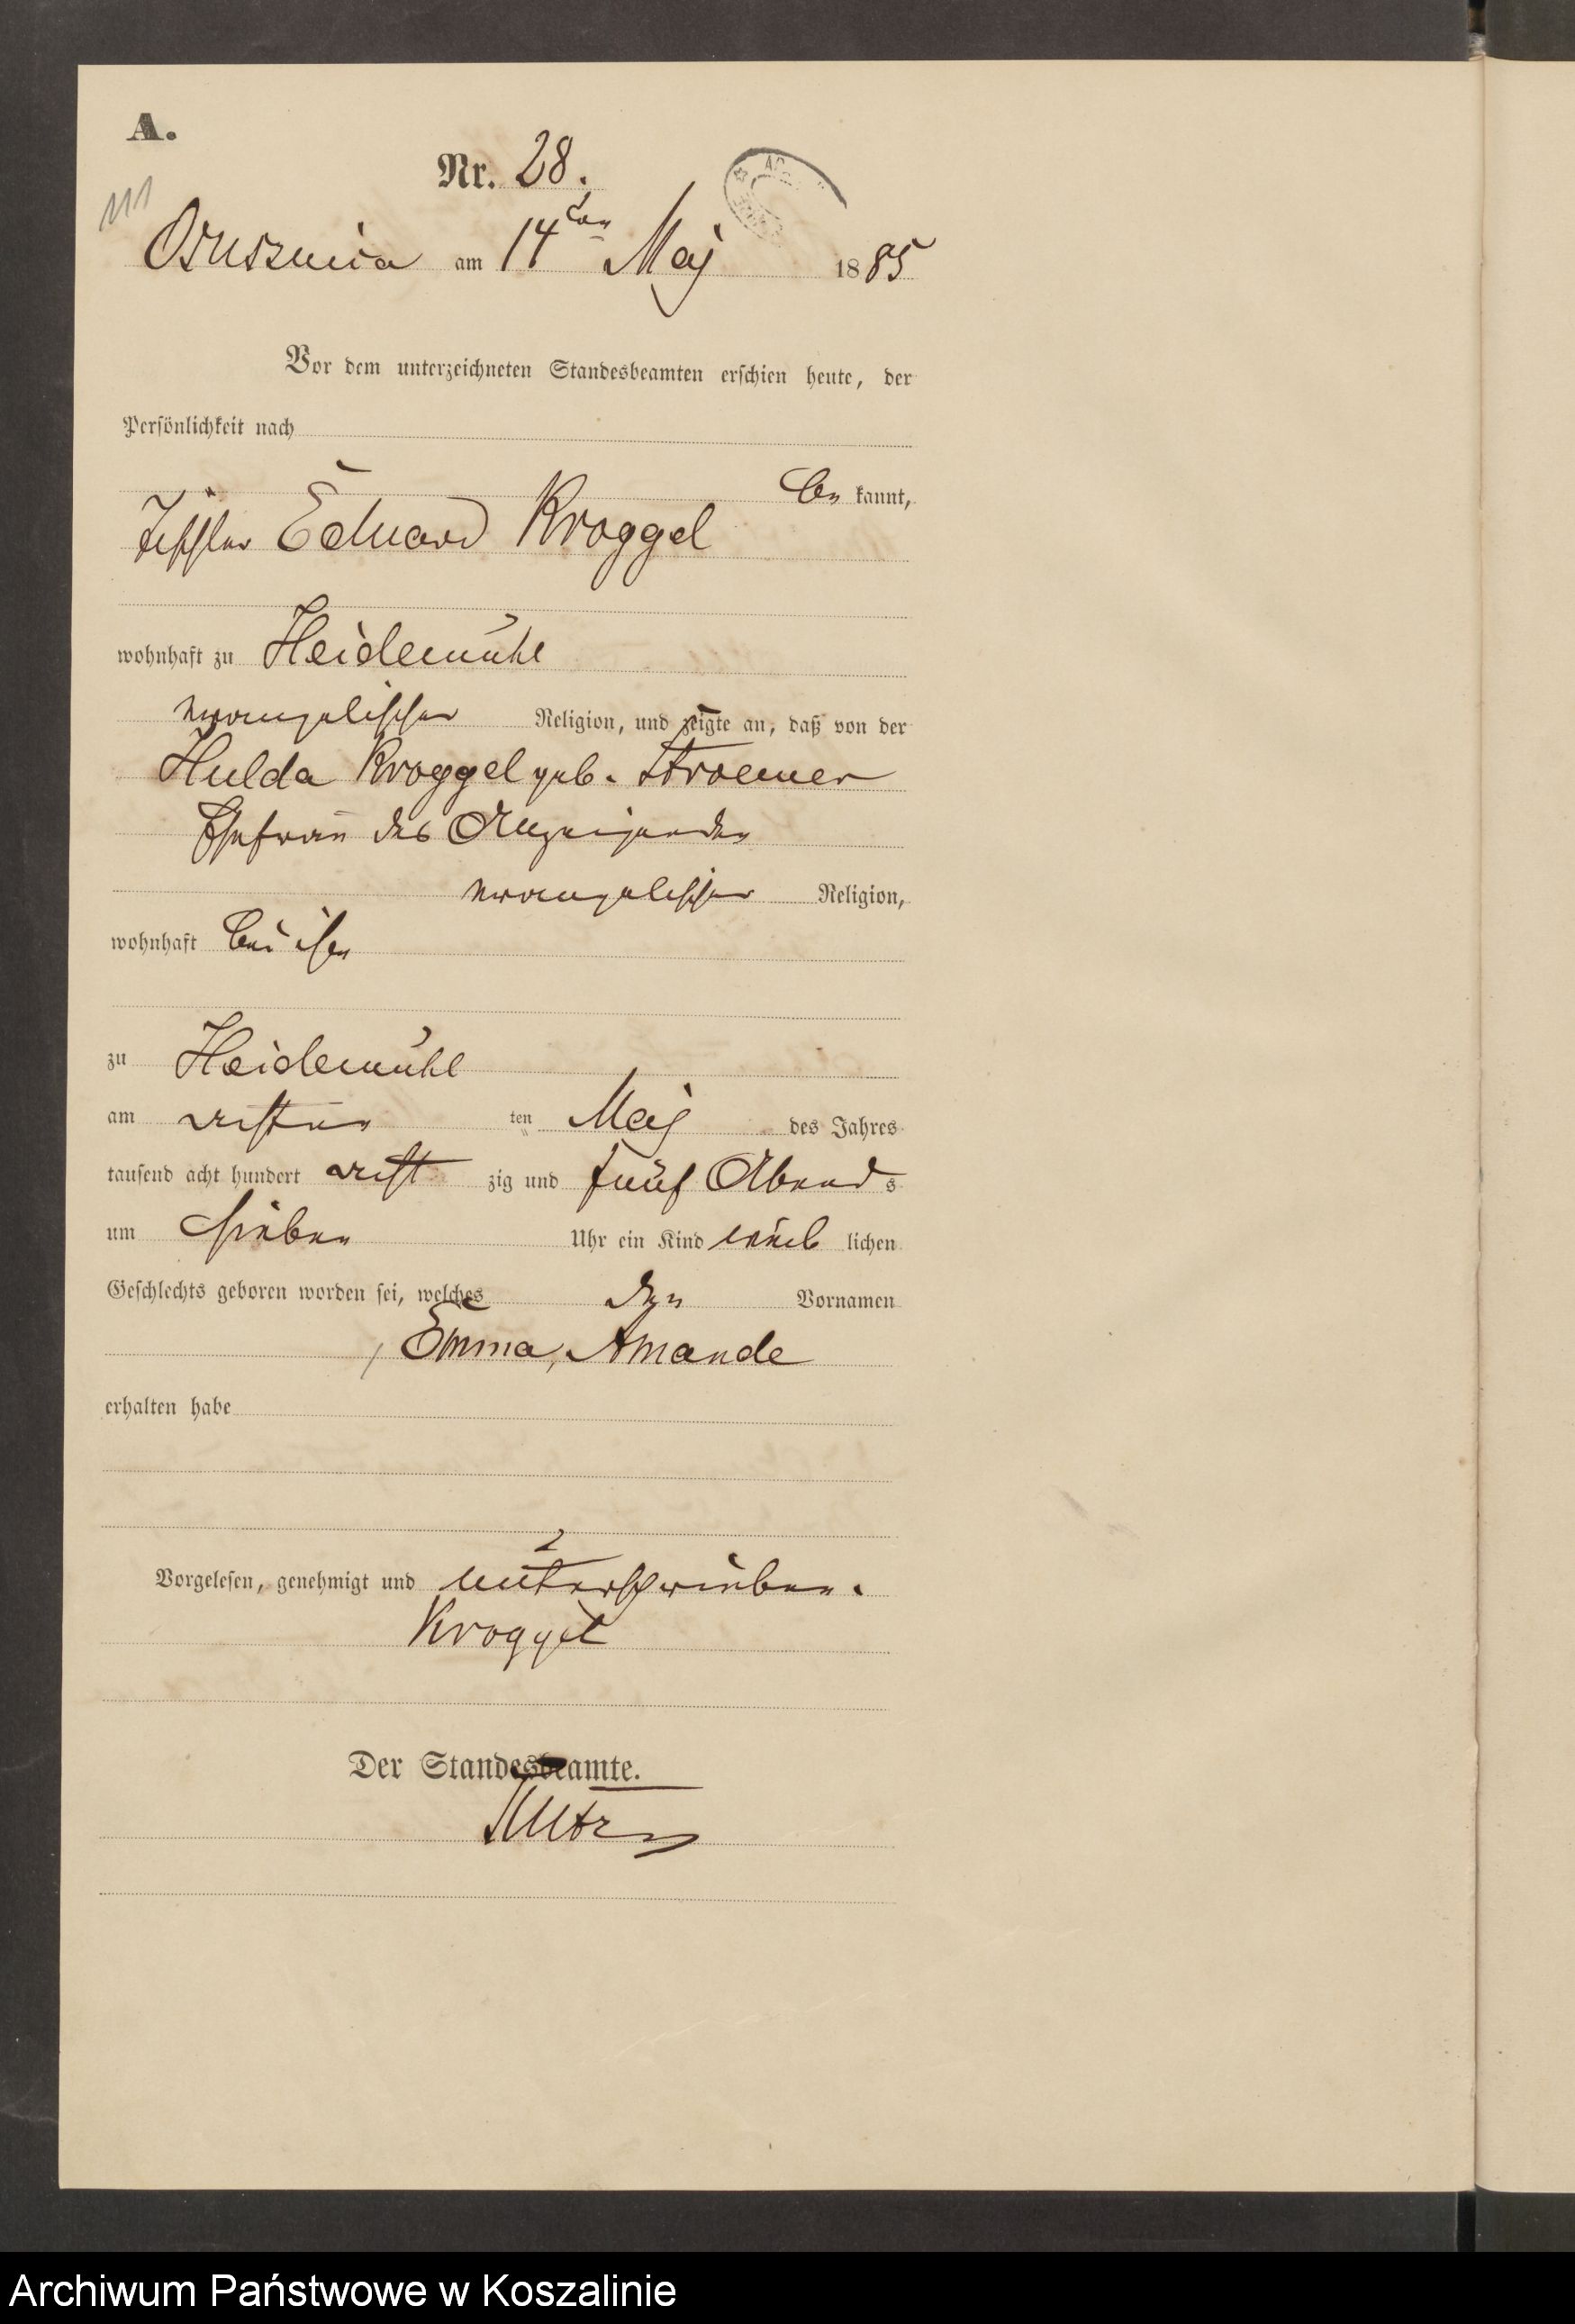 A.
Nr. 28.
111
Osusznica am 14ten Maj 1885
Vor dem unterzeichneten Standesbeamten erschien heute, der
Persönlichkeit nach
be kannt,
Tischler Eduard Kroggel
wohnhaft zu Heidemühl
evangelischer Religion, und zeigte an, daß von der
Hulda Kroggel geb. Stroemer
Ehefrau des Anzeigenden
evangelischer Religion,
wohnhaft bei ihm
zu Heidemühl
am achten ten Maj des Jahres
tausend acht hundert acht zig und fünf Abends
um sieben Uhr ein Kind weib lichen
Geschlechts geboren worden sei, welches den Vornamen
Emma, Amande
erhalten habe
Vorgelesen, genehmigt und unterschrieben.
Kroggel
Der Standesbeamte.
Archiwum Państwowe w Koszalinie